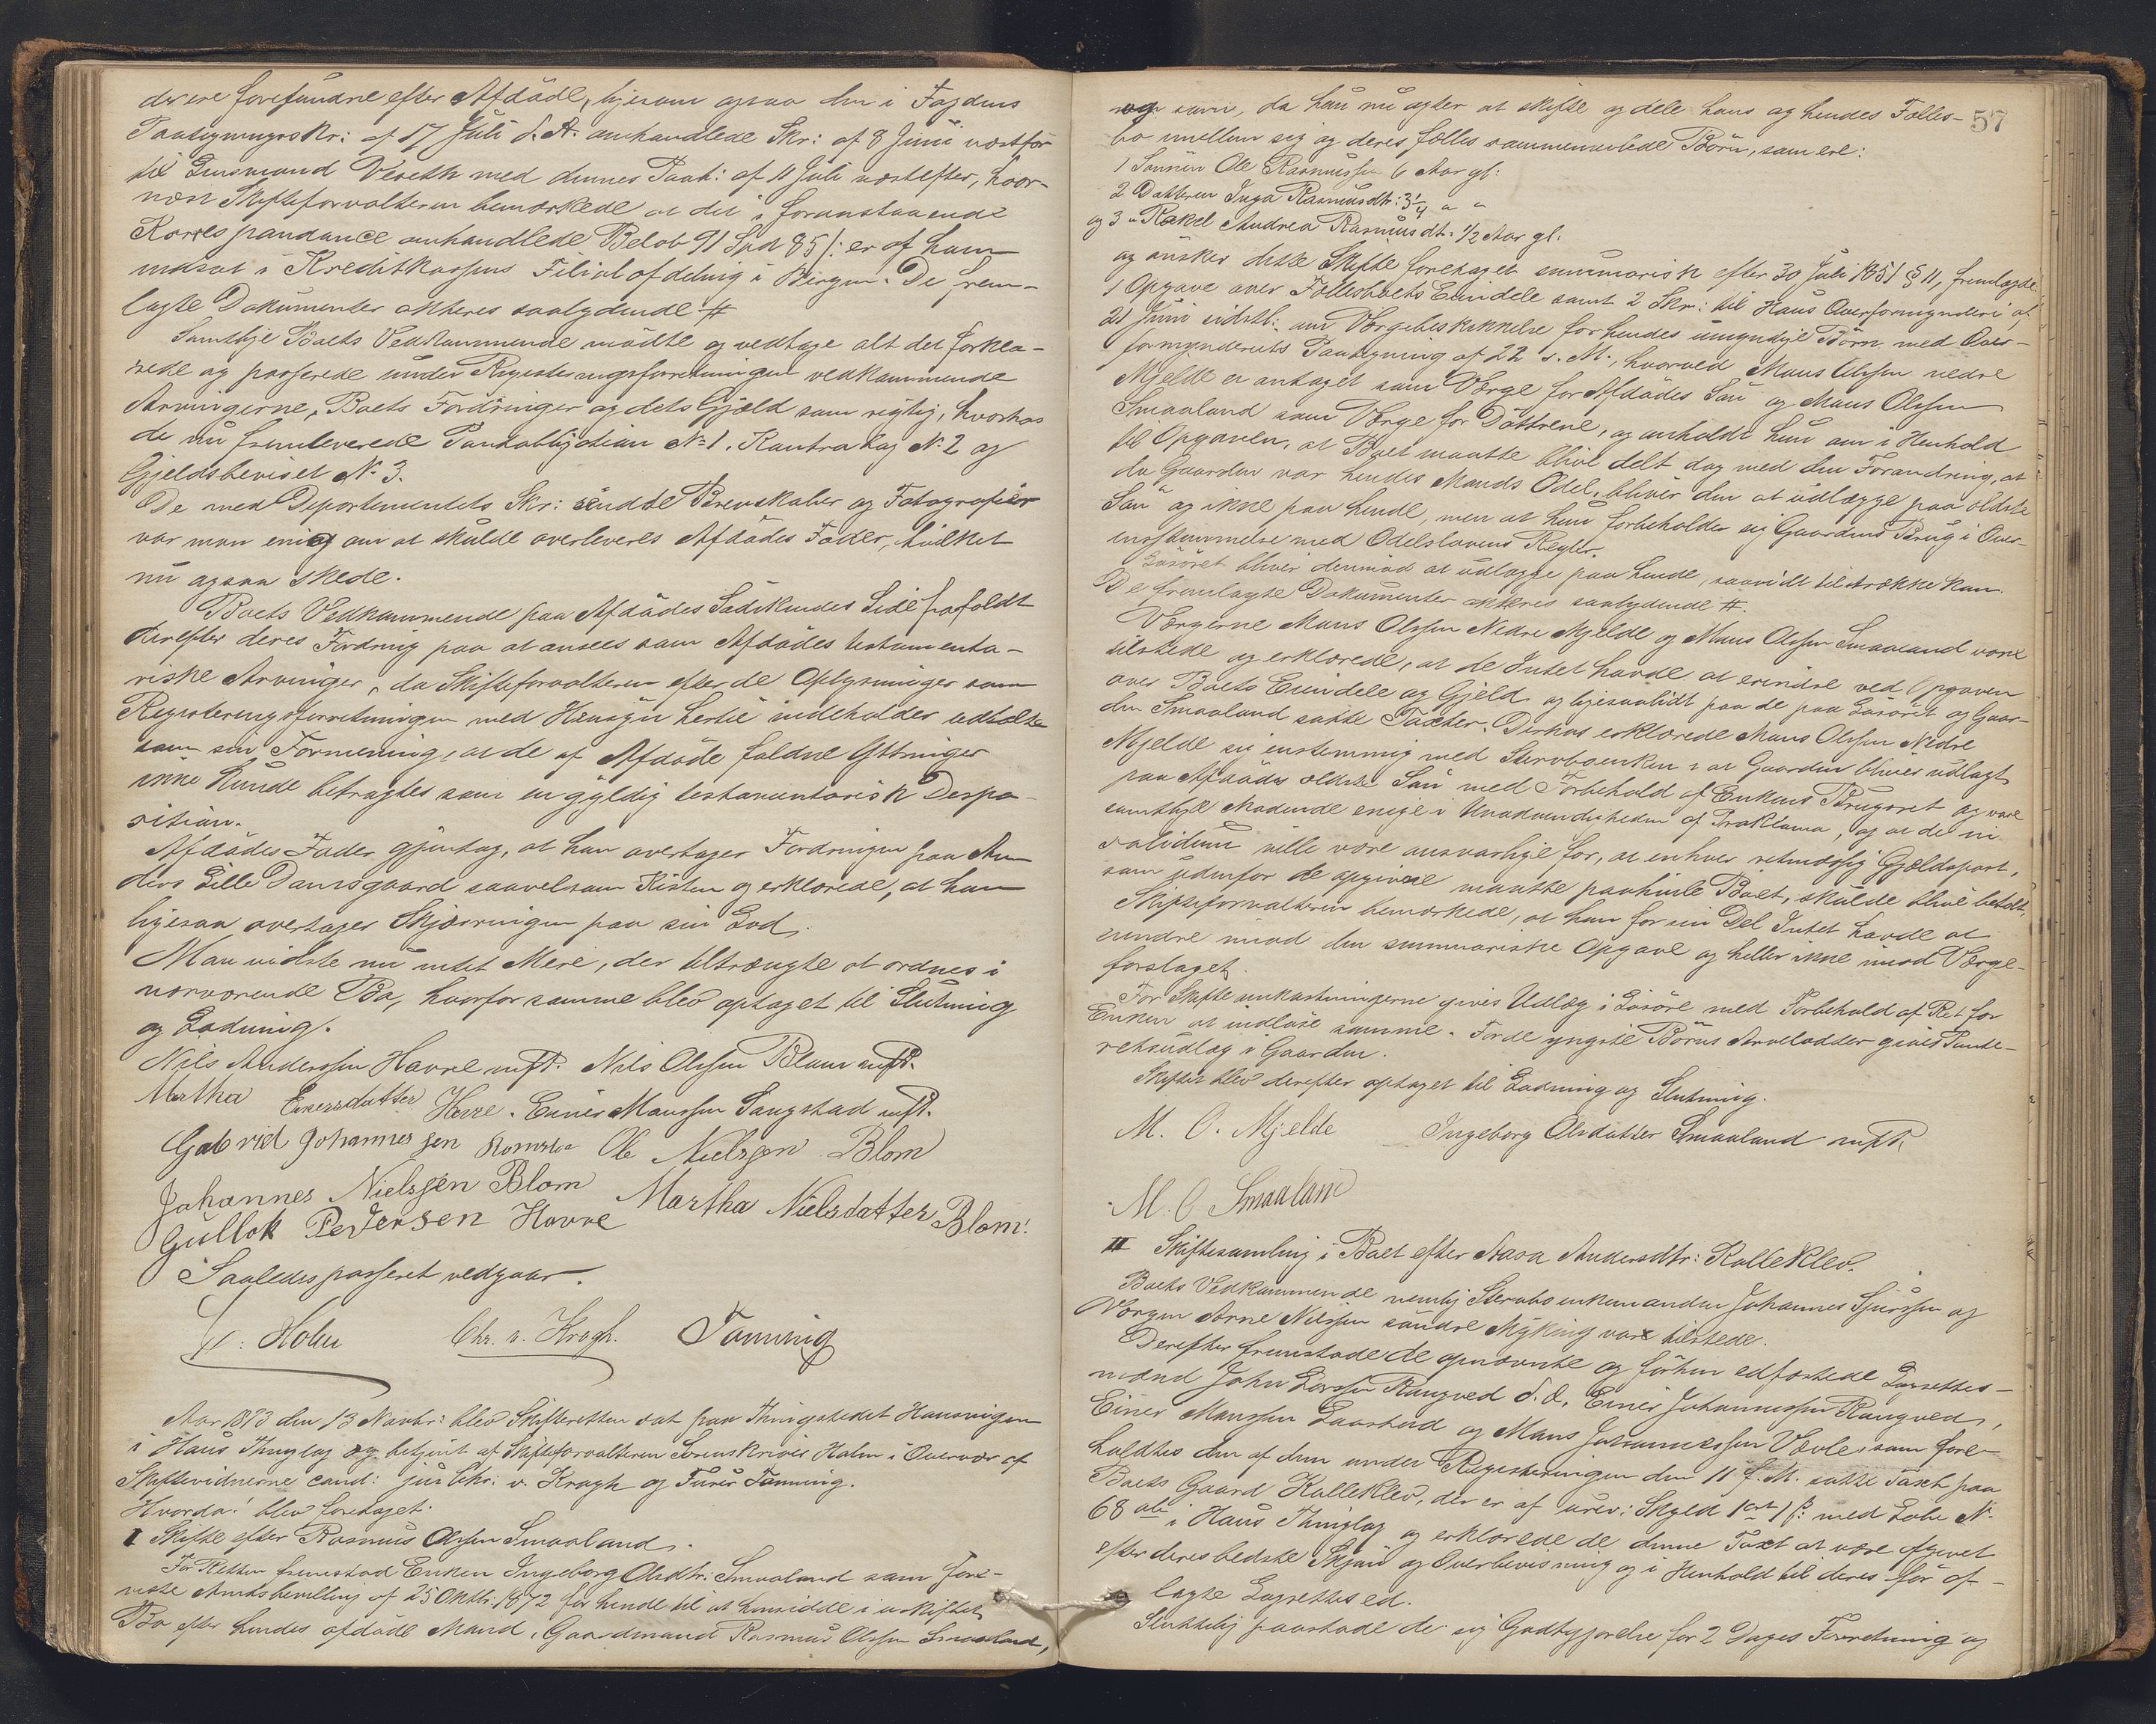 der ere forefundne efter Afdøde, ligesom ogsaa den i Fogdens
Paategningsskr: af 17 Juli d. A. omhandlede Skr: af 8 Juni næstfør
til Lensmand Vereth med dennes Paat: af 11 Juli næstefter, hvor-
næst Skifteforvalteren bemærkede at det i foranstaaende
Korrespondance omhandlede Beløb 91 Spd 85 /: er af ham
indsat i Kreditkassens Filialafdeling i Bergen. De frem-
lagte Dokumenter akteres saalydende #
Samtlige Boets Vedkommende mødte og vedtoge alt det forkla-
rede og passerede under Registreringsforretningen vedkommende
Arvingerne, Boets Fordringer og dets Gjæld som rigtig, hvorhos
de nu fremleverede Panteobligation No 1, Kontrakt N. 2 og
Gjeldsbeviset N. 3.
De med Departementets Skr: sendte Brevskaber og Fotografier
var man enig om at skulde overleveres Afdødes Fader, hvilket
nu ogsaa skede.
Boets Vedkommende paa Afdødes Sødskendes Side frafaldt
derefter deres Fordring paa at ansees som Afdødes testamenta-
riske Arvinger, da Skifteforvalteren efter de Oplysninger som
Registreringsforretningen med Hensyn hertil indeholder udtalte
som sin Formening, at de af Afdøde faldne Yttringer
ikke kunde betragtes som en gyldig testamentarisk Dispo-
sition.
Afdødes Fader gjentog, at han overtager Fordringen paa An-
ders Lille Damsgaard saavelsom Kisten og erklærede, at han
ligesaa overtager Skjævningen paa sin Lod.
Man vidste nu intet Mere, der tiltrængte at ordnes i
nærværende Bo, hvorfor samme blev optaget til Slutning
og Lodning.
Nils Anderssen Havre mpP. Nils Olssen Blom mpP.
Martha Einersdatter Havre. Einer Monssen Sangstad mpP.
Gabriel Johannessen Romslo Ole Nielssen Blom
Johannes Nielssen Blom Martha Nielsdatter Blom!
Gullok Pedersen Havre
Saaledes passeret vedgaar.
Holm Chr. v. Krogh. Tanning
Aar 1873 den 13 Novbr: blev Skifteretten sat paa Thingstedet Hausvigen
i Haus Thinglag og betjent af Skifteforvalteren Sorenskriver Holm i Overvær af
Skiftevidnerne cand: jur Chr: v. Krogh og Furer Tanning.
Hvorda! blev foretaget:
I Skifte efter Rasmus Olssen Smaaland.
For Retten fremstod Enken Ingeborg Olsdtr: Smaaland som fore-
viste Amtsbevilling af 25 Oktbr. 1872 for hende til at hensidde i uskiftet
Bo efter hendes afdøde Mand, Gaardmand Rasmus Olssen Smaaland,
57
og som, da hun nu agter at skifte og dele hans og hendes Fælles-
bo mellem sig og deres fælles sammenavlede Børn, som ere:
1 Sønnen Ole Rasmussen 6 Aar gl:
2 Datteren Inga Rasmusdtr: 3 1/4 " "
og 3 " Rakel Andrea Rasmusdt: 1/2 Aar gl.
og ønsker dette Skifte foretaget summarisk efter 30 Juli 1851 § 11, fremlagde
1 Opgave over Fællesboets Eiendele samt 2 Skr: til Haus Overformynderi af
21 Juni sidstl: om Værgebeskikkelse for hendes umyndige Børn med Over-
formynderiets Paategning af 22 s. M., hvorved Mons Olssen nedre
Mjelde er antaget som Værge for Afdødes Søn og Mons Olssen
Smaaland som Værge for Døttrene, og anholdt hun om i Henhold
til Opgaven, at Boet maatte blive delt dog med den Forandring, at
da Gaarden var hendes Mands Odel, bliver den at udlægge paa ældste
Søn og ikke paa hende, men at hun forbeholder sig Gaardens Brug i Over-
ensstemmelse med Odelslovens Regler.
Løsøret bliver derimod at udlægge paa hende, saavidt tilstrække kan.
De fremlagte Dokumenter akteres saalydende #.
Værgerne Mons Olssen Nedre Mjelde og Mons Olssen Smaaland vare
tilstede og erklærede, at de Intet havde at erindre ved Opgaven
over Boets Eiendele og Gjeld og ligesaalidt paa de paa Løsøret og Gaar-
den Smaaland satte Taxter. Derhos erklærede Mons Olssen Nedre
Mjelde sig enstemmig med Stervboenken i at Gaarden bliver udlagt
paa Afdødes ældste Søn med Forbehold af Enkens Brugsret og vare
samtlige Mødende enige i Unødvendigheden af Proklama, og at de in
solidum ville være ansvarlige for, at enhver retmæssig Gjældspost,
som udenfor de opgivne maatte paahvile Boet, skulde blive betalt.
Skifteforvalteren bemærkede, at han for sin Del Intet havde at
erindre imod den summariske Opgave og heller ikke imod Værge-
forslaget.
For Skifteomkostningerne gives Udlæg i Løsøre med Forbehold af Ret for
Enken at indløse samme. For de yngste Børns Arvelodder gives Pante-
retsudlæg i Gaarden.
Skiftet blev derefter optaget til Lodning og Slutning.
M. O. Mjelde Ingeborg Olsdatter Smaaland mpP.
M. O Smaaland
II Skiftesamling i Boet efter Aasa Andersdtr: Kalleklev.
Boets Vedkommende nemlig Stervboenkemanden Johannes Sjurssen og
Værgen Arne Nilssen søndre Myking vare tilstede.
Derefter fremstode de opnævnte og forhen edfæstede Lagrettes-
mænd John Larssen Rangved d. æ. Einer Johannessen Rangved,
Einer Monssen Gaarstad og Mons Johannessen Vævle, som fore-
holdtes den af dem under Registreringen den 11 f. M. satte Taxt paa
Boets Gaard Kalleklev, der er af urev: Skyld 1 ort 1 /: med Løbe N.
68 ab i Haus Thinglag og erklærede de denne Taxt at være afgivet
efter deres bedste Skjøn og Overbevisning og i Henhold til deres før af-
lagte Lagrettesed.
Sluttelig paastode de sig Godtgjørelse for 2 Dages Forretning og